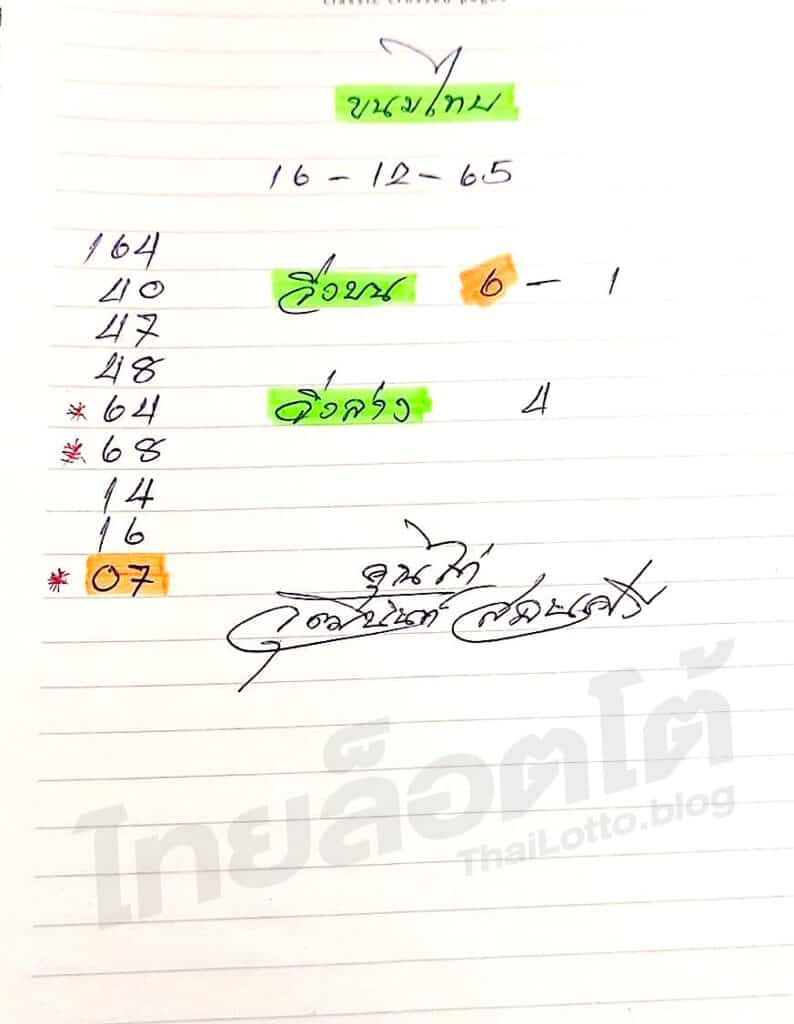 ขนมไทย
16 - 12 - 65
164
40 วิ่งบน 6 - 1
47
48
* 64 วิ่งล่าง 4
* 68
14
16
* 07
ไทยล็อตโต้
ThaiLotto.blog